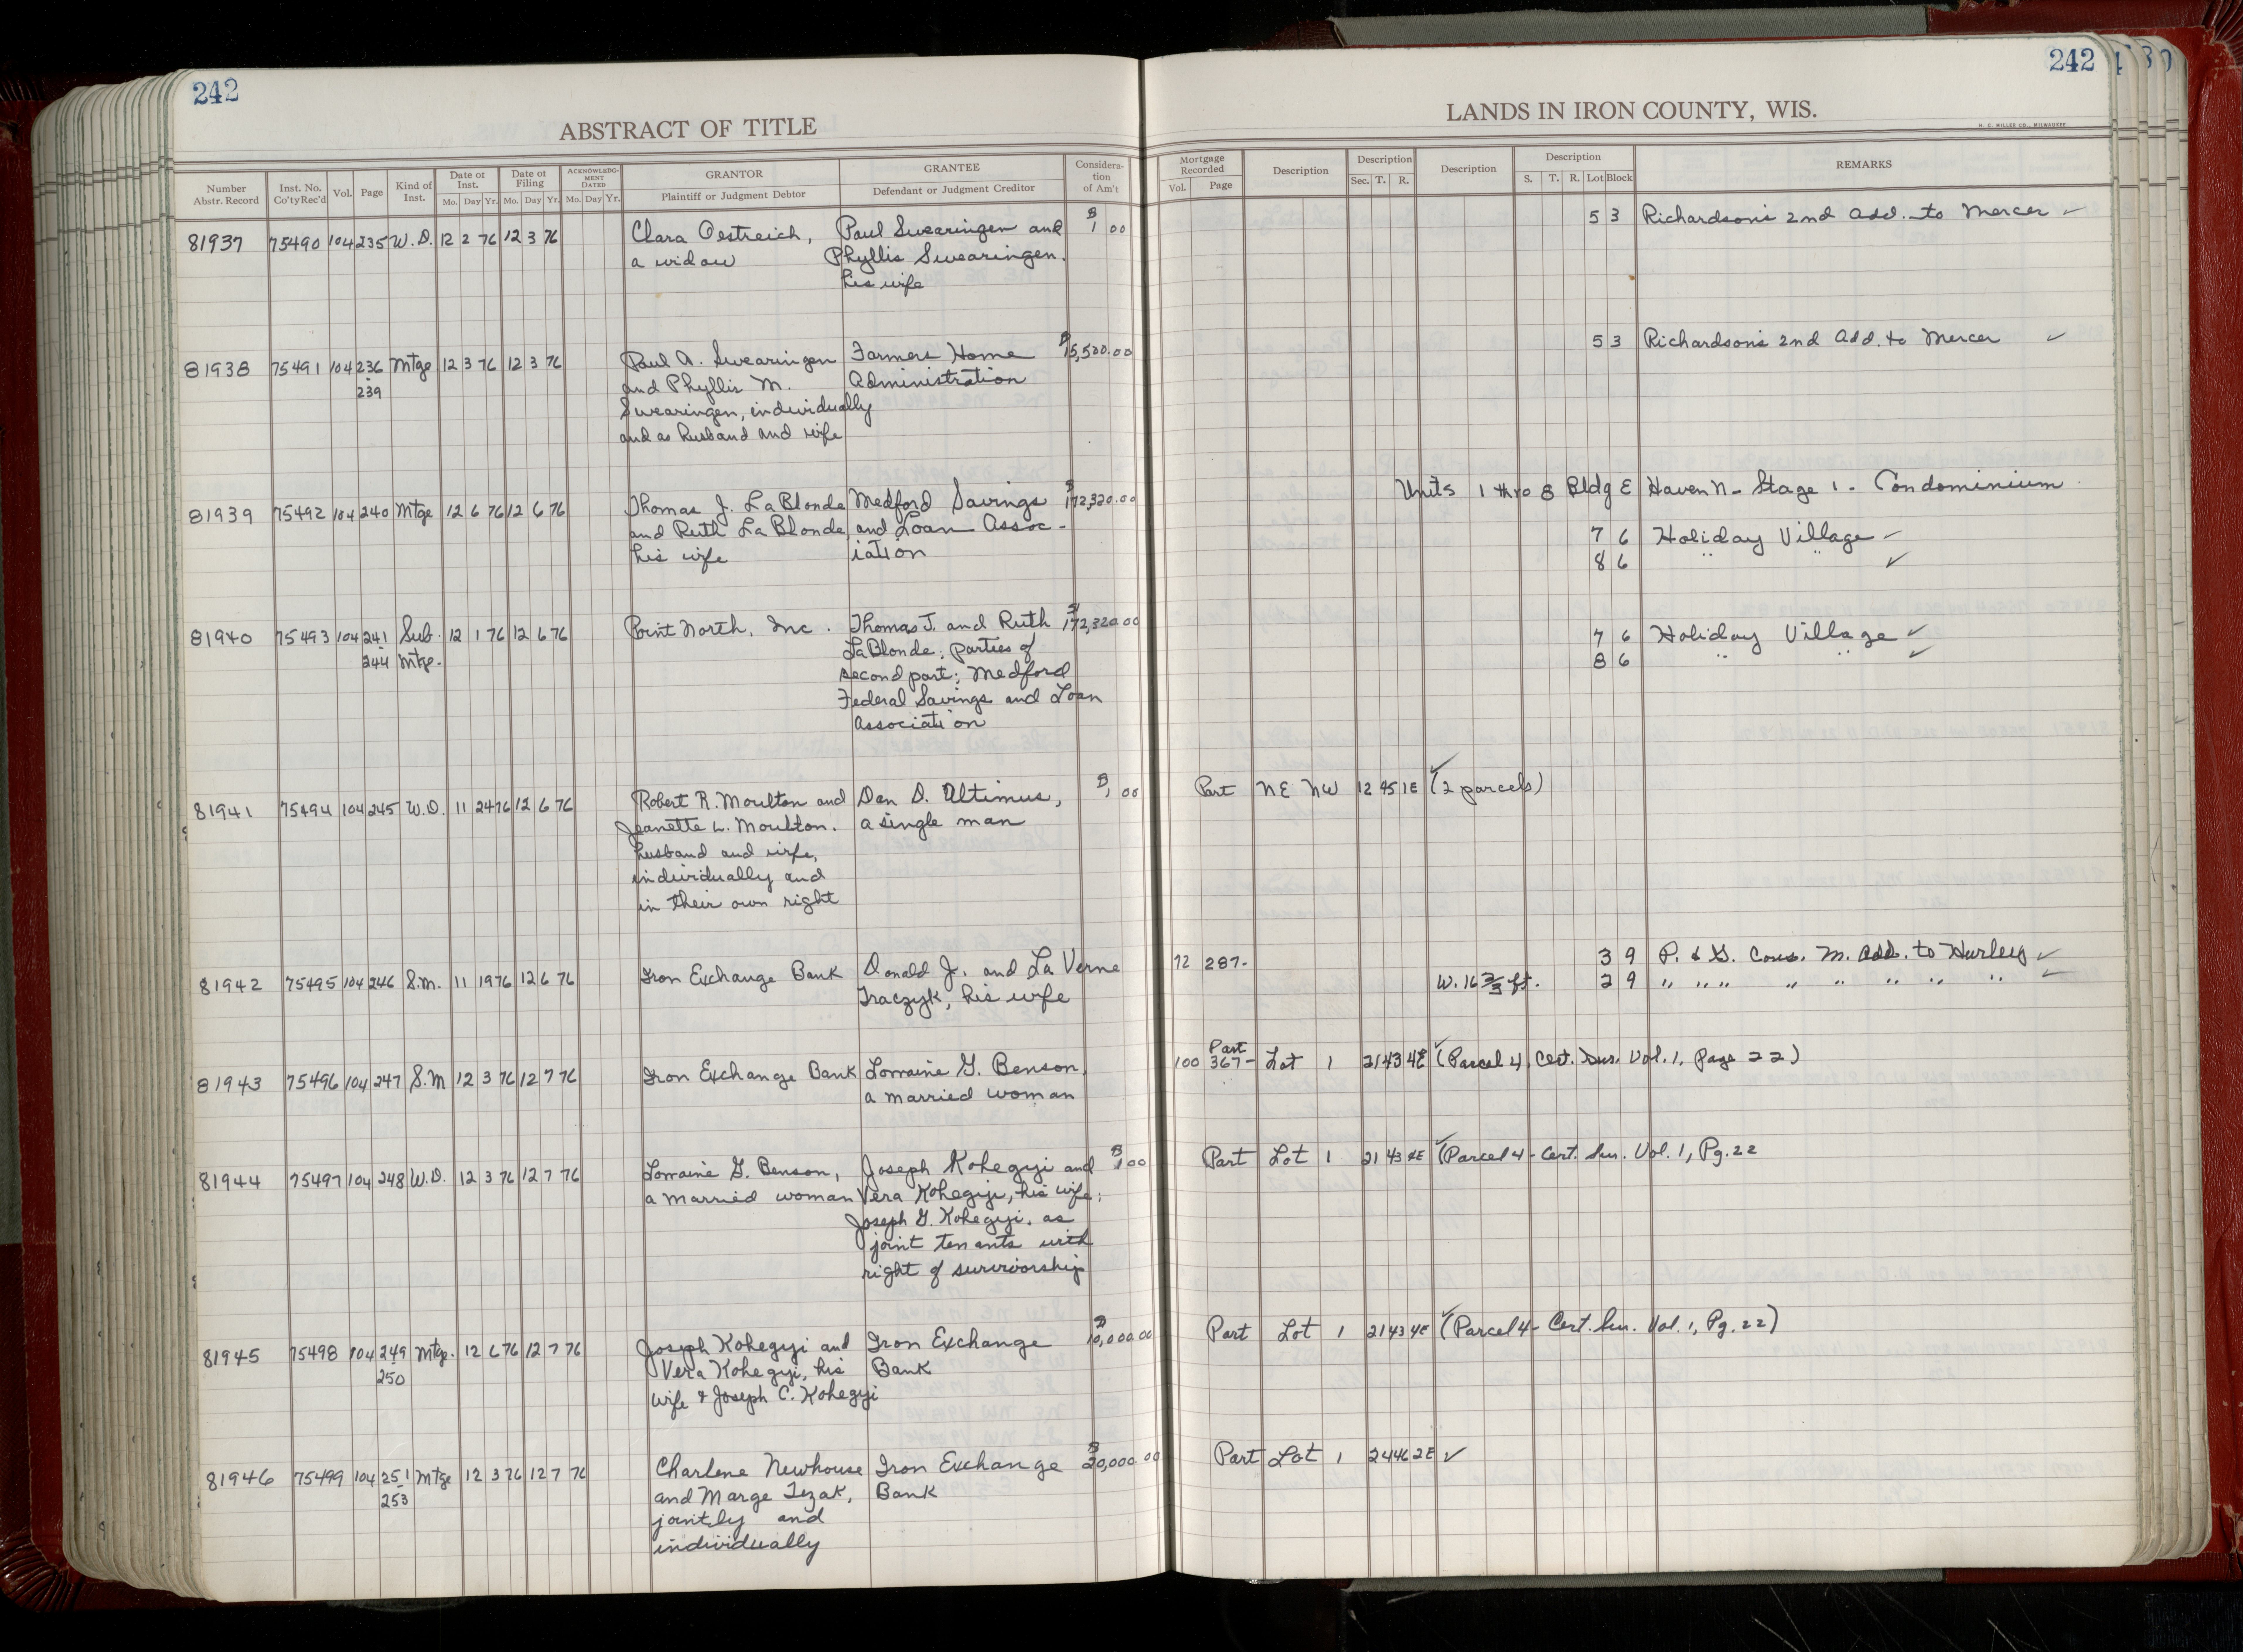 242
ABSTRACT OF TITLE
Number Abstr. Record
Inst. No. Co'ty Rec'd
Vol.
Page
Kind of Inst.
Date of Inst. Mo. Day Yr.
Date of Filing Mo. Day Yr.
ACKNOWLEDGMENT DATED Mo. Day Yr.
GRANTOR Plaintiff or Judgment Debtor
GRANTEE Defendant or Judgment Creditor
Considera-tion of Am't
242
LANDS IN IRON COUNTY, WIS.
H. C. MILLER CO., MILWAUKEE
Mortgage Recorded Vol. Page
Description
Description Sec. T. R.
Description
Description S. T. R. Lot Block
REMARKS
81937 75490 104 235 W.D. 12 2 76 12 3 76 Clara Oestreich, Paul Swearingen and $1 00 5 3 Richardson's 2nd Add. to Mercer ✓
a widow Phyllis Swearingen,
his wife
81938 75491 104 236 Mtge 12 3 76 12 3 76 Paul A. Swearingen Farmers Home $15,500.00 5 3 Richardson's 2nd Add. to Mercer ✓
- 239 and Phyllis M. Administration
Swearingen, individually
and as husband and wife
81939 75492 104 240 Mtge 12 6 76 12 6 76 Thomas J. LaBlonde Medford Savings $172,320.00 Units 1 thro 8 Bldg E Haven N - Stage 1 - Condominium
and Ruth LaBlonde, and Loan Assoc- 7 6 Holiday Village ✓
his wife iation 8 6 " " ✓
81940 75493 104 241 Sub. 12 1 76 12 6 76 Point North, Inc. Thomas J. and Ruth $172,320.00 7 6 Holiday Village ✓
- 244 Mtge. LaBlonde; parties of 8 6 " " ✓
second part; Medford
Federal Savings and Loan
Association
81941 75494 104 245 W.D. 11 24 76 12 6 76 Robert R. Moulton and Dan D. Altimus, $1 00 Part NE NW 12 45 1E ✓ (2 parcels)
Jeanette L. Moulton, a single man
husband and wife,
individually and
in their own right
81942 75495 104 246 S.M. 11 19 76 12 6 76 Iron Exchange Bank Donald J. and La Verne 72 287- 3 9 P. & G. Cons. M. Add. to Hurley ✓
Traczyk, his wife W. 16 2/3 ft. 2 9 " " " " " " " " ✓
81943 75496 104 247 S.M 12 3 76 12 7 76 Iron Exchange Bank Lorraine G. Benson, 100 Part 367- Lot 1 21 43 4E ✓ (Parcel 4, Cert. Sur. Vol. 1, Page 22)
a married woman
81944 75497 104 248 W.D. 12 3 76 12 7 76 Lorraine G. Benson, Joseph Kohegyi and $1 00 Part Lot 1 21 43 4E ✓ (Parcel 4 - Cert. Sur. Vol. 1, Pg. 22
a married woman Vera Kohegyi, his wife;
Joseph G. Kohegyi, as
joint tenants with
right of survivorship
81945 75498 104 249 Mtge. 12 6 76 12 7 76 Joseph Kohegyi and Iron Exchange $10,000.00 Part Lot 1 21 43 4E ✓ (Parcel 4 - Cert. Sur. Vol. 1, Pg. 22)
- 250 Vera Kohegyi, his Bank
wife & Joseph C. Kohegyi
81946 75499 104 251 Mtge 12 3 76 12 7 76 Charlene Newhouse Iron Exchange $20,000.00 Part Lot 1 24 46 2E ✓
- 253 and Marge Tezak, Bank
jointly and
individually